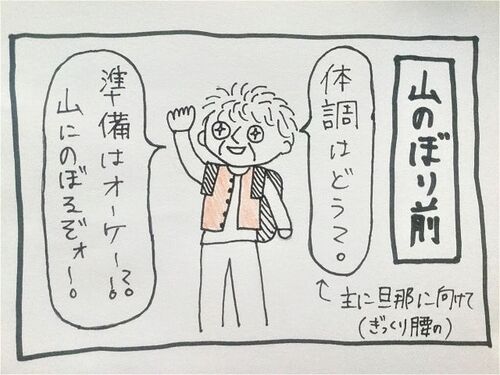 山のぼり前
体調はどう?。
↑主に旦那に向けて
(ぎっくり腰の)
準備はオーケー?!
山にのぼるぞォー!。